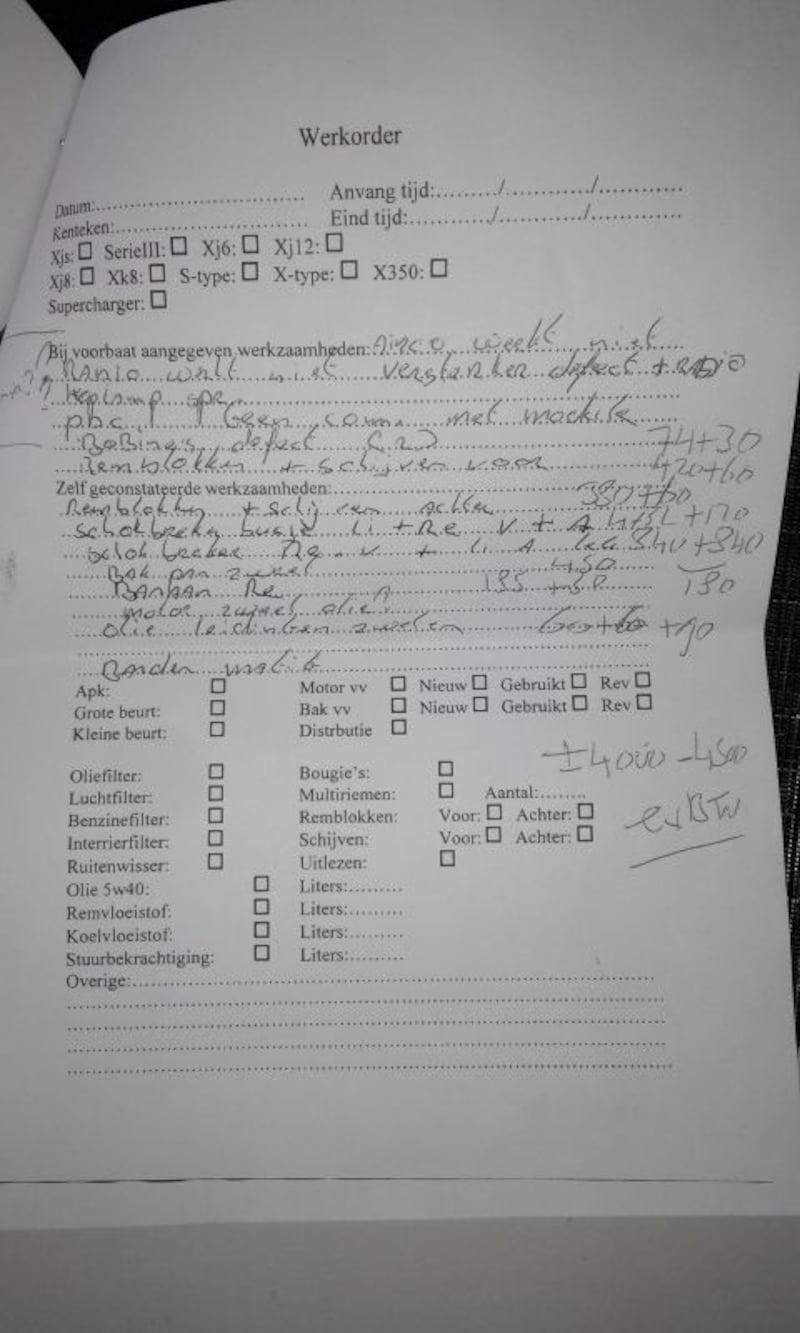 Werkorder
Datum:.......... Anvang tijd:........./............/............
Kenteken:.......... Eind tijd:........./............/............
Xjs: ☐ SerieIII: ☐ Xj6: ☐ Xj12: ☐
Xj8: ☐ Xk8: ☐ S-type: ☐ X-type: ☐ X350: ☐
Supercharger: ☐
Bij voorbaat aangegeven werkzaamheden: Airco werkt niet
Radio werkt niet versterker defect + radio
Koplamp
p.d.c. geen comm. met module
defect 74+30
Remblokken + schijven voor 420+60
Zelf geconstateerde werkzaamheden:
Remblokken + schijven achter
schokbreker busje Li + Re V + A
schokbreker Re V + Li A lek 340 + 340
Bak pan zweet 450
Re A 135 130
motor zweet olie
olie leidingen zweten +90
Banden matig
Apk: ☐ Motor vv ☐ Nieuw ☐ Gebruikt ☐ Rev ☐
Grote beurt: ☐ Bak vv ☐ Nieuw ☐ Gebruikt ☐ Rev ☐
Kleine beurt: ☐ Distrbutie ☐
±4000 - 4500
Oliefilter: ☐ Bougie's: ☐
Luchtfilter: ☐ Multiriemen: ☐ Aantal:........
exBTW
Benzinefilter: ☐ Remblokken: Voor: ☐ Achter: ☐
Interrierfilter: ☐ Schijven: Voor: ☐ Achter: ☐
Ruitenwisser: ☐ Uitlezen: ☐
Olie 5w40: ☐ Liters:.........
Remvloeistof: ☐ Liters:.........
Koelvloeistof: ☐ Liters:.........
Stuurbekrachtiging: ☐ Liters:.........
Overige:..........